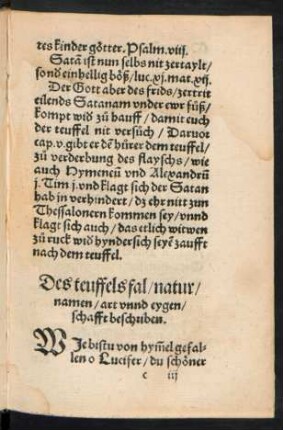 tes kinder götter. Psalm. viij.
Satā ist nun selbs nit zertaylt/
sond̕ einhellig böß/ luc. xj. mat. xij.
Der Gott aber des frids/ zertrit
eilends Satanam vnder ewr füß/
kompt wid̕ zů hauff/ damit euch
der teuffel nit versůch/ Daruor
cap. v. gibt er dē hůrer dem teuffel/
zů verderbung des flayschs/ wie
auch Hymeneū vnd Alexandrū
j. Tim j. vnd klagt sich der Satan
hab in verhindert/ dz ehr nitt zun
Thessalonern kommen sey/ vnnd
klagt sich auch/ das etlich witwen
zů ruck wid̕ hyndersich seyē zaufft
nach dem teuffel.
Des teuffels fal/ natur/
namen/ art vnnd eygen/
schafft beschuben.
WJe bistu von hym̄el gefal-
len o Lucifer/ du schöner
c iij